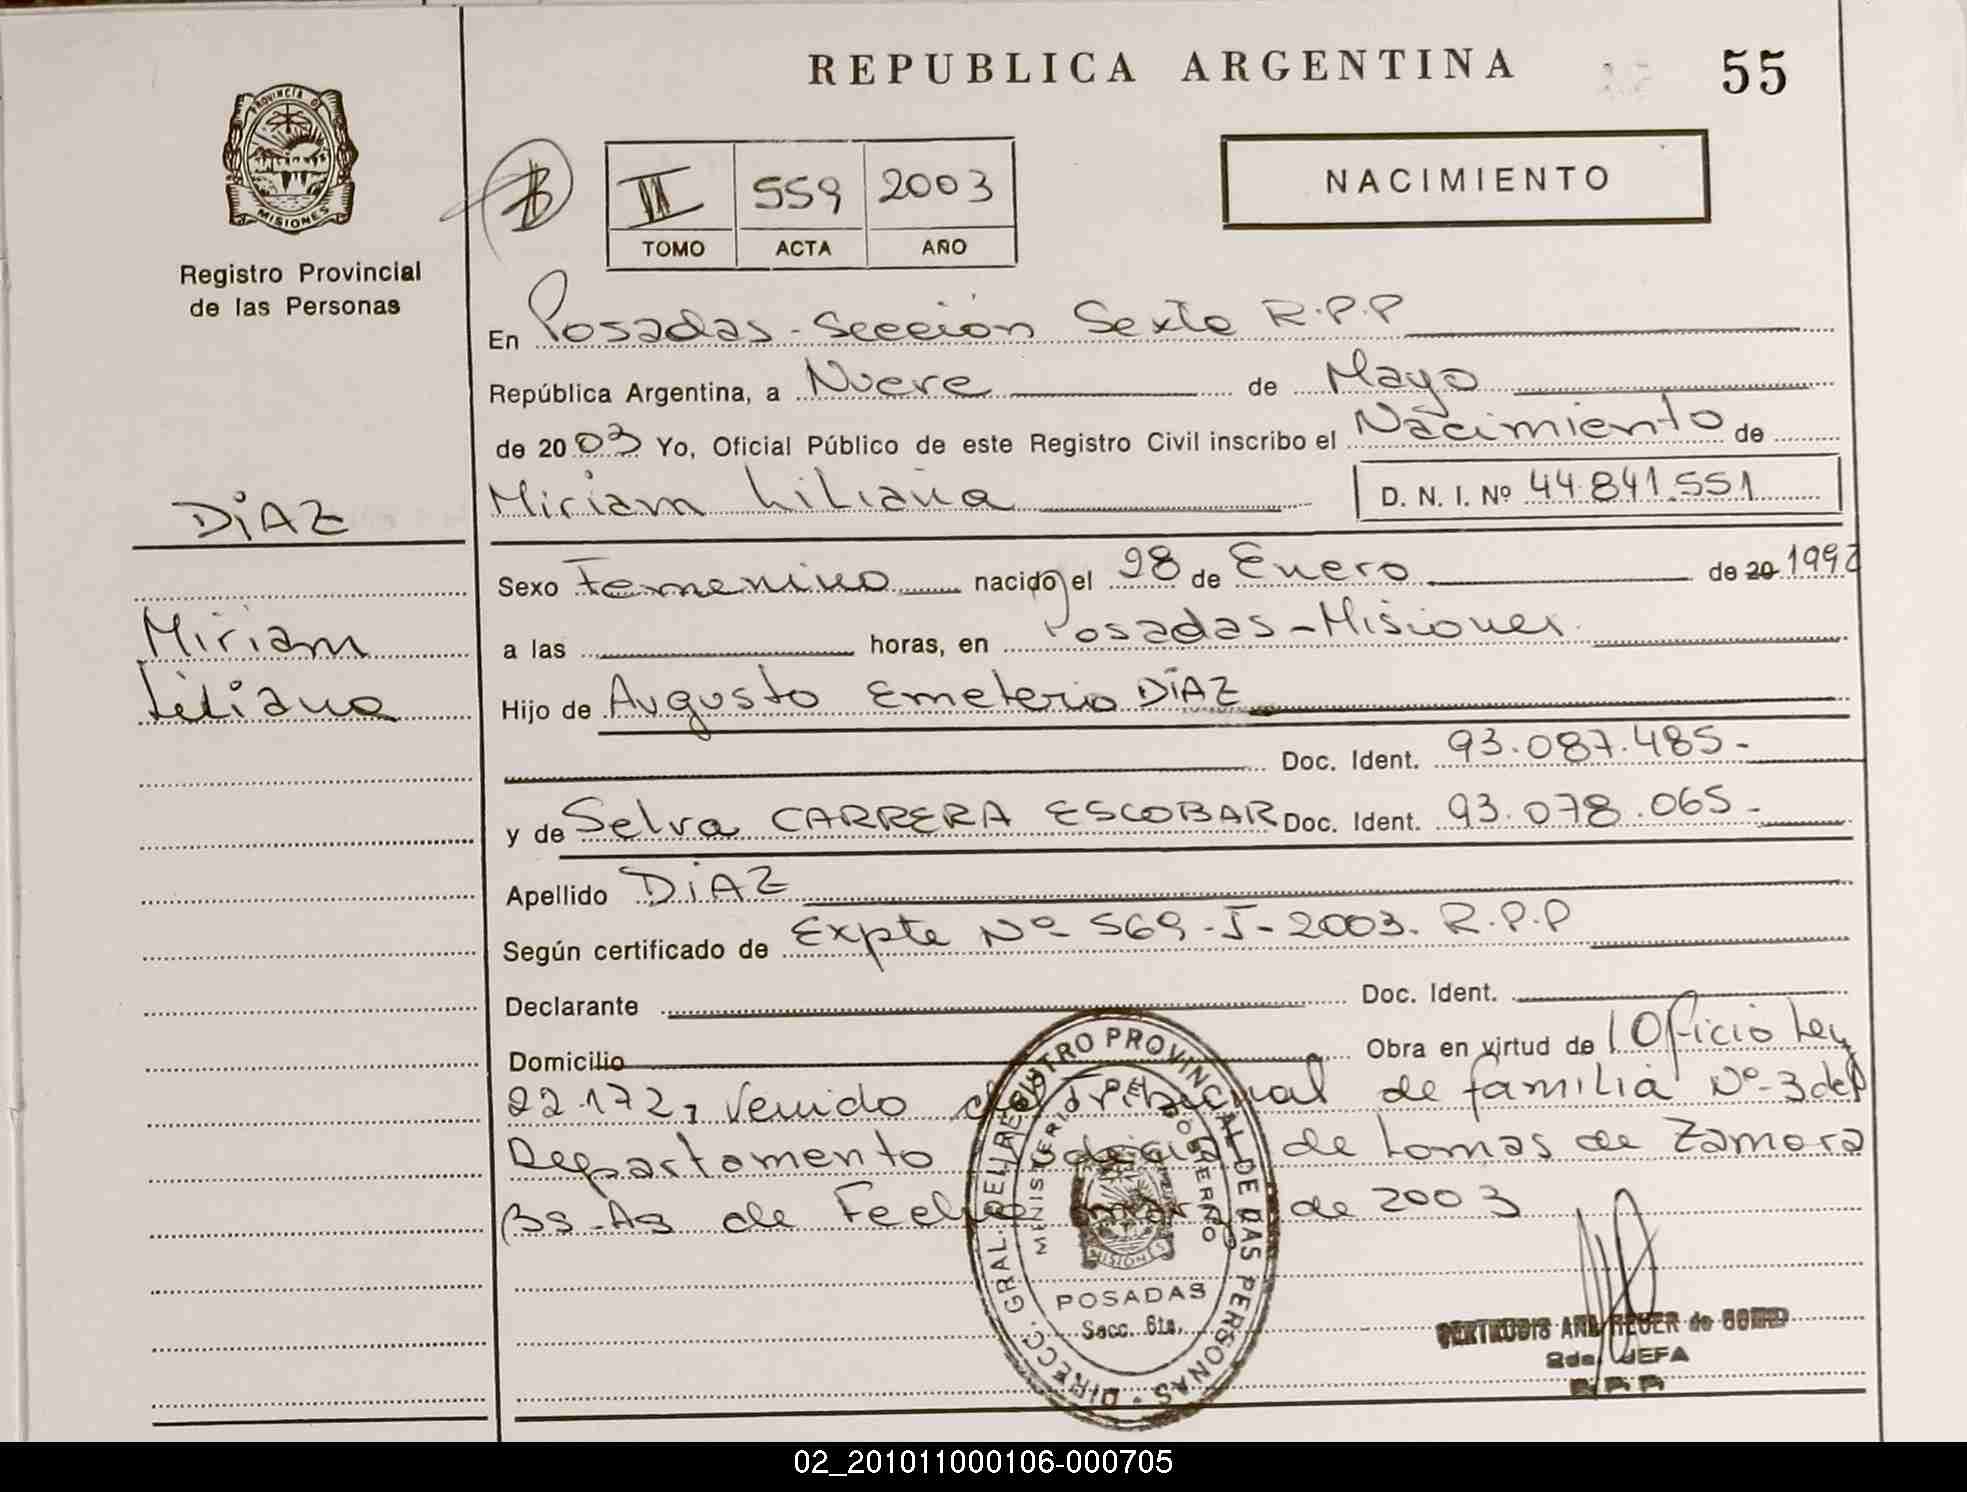 REPUBLICA ARGENTINA 55
PROVINCIA D
MISIONES
Registro Provincial
de las Personas
II 559 2003
TOMO ACTA AÑO
NACIMIENTO
En Posadas - Sección Sexta R.P.P
República Argentina, a Nueve de Mayo
de 2003 Yo, Oficial Público de este Registro Civil inscribo el Nacimiento de
Miriam Liliana D. N. I. Nº 44.841.551
DiAZ
Miriam
Liliana
Sexo Femenino nacido el 28 de Enero de 20 199
a las horas, en Posadas - Misiones.
Hijo de Augusto Emeterio DiAZ
Doc. Ident. 93.087.485.-
y de Selva CARRERA ESCOBAR Doc. Ident. 93.078.065.-
Apellido DiAZ
Según certificado de Expte Nº 569-I-2003. R.P.P
Declarante Doc. Ident.
Domicilio Obra en virtud de Oficio Ley
22.172, Venido del Tribunal de familia Nº-3 del
Departamento Judicial de Lomas de Zamora
Bs-As de Fecha de 2003
DIRECC. GRAL. DEL REGISTRO PROVINCIAL DE LAS PERSONAS
MINISTERIO DE GOBIERNO
MISIONES
POSADAS
Secc. 6ta.
GERTRUDIS ANA de
2da. JEFA
R.P.P
02_201011000106-000705